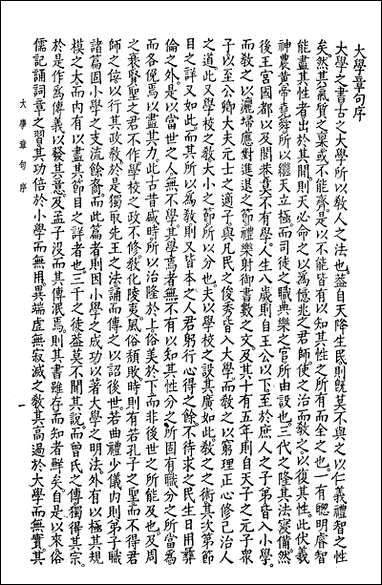 大學章句序
大學之書古之大學所以教人之法也蓋自天降生民則既莫不與之以仁義禮智之性
矣然其氣質之稟或不能齊是以不能皆有以知其性之所有而全之也一有聰明睿智
能盡其性者出於其間則天必命之以爲億兆之君師使之治而教之以復其性此伏羲
神農黃帝堯舜所以繼天立極而司徒之職典樂之官所由設也三代之隆其法寖備然
後王宮國都以及閭巷莫不有學人生八歲則自王公以下至於庶人之子弟皆入小學
而教之以灑埽應對進退之節禮樂射御書數之文及其十有五年則自天子之元子眾
子以至公卿大夫元士之適子與凡民之俊秀皆入大學而教之以窮理正心修己治人
之道此又學校之教大小之節所以分也夫以學校之設其廣如此教之之術其次第節
目之詳又如此而其所以爲教則又皆本之人君躬行心得之餘不待求之民生日用彝
倫之外是以當世之人無不學其學焉者無不有以知其性分之所固有職分之所當爲
而各俛焉以盡其力此古昔盛時所以治隆於上俗美於下而非後世之所能及也及周
之衰賢聖之君不作學校之政不修教化陵夷風俗頹敗時則有若孔子之聖而不得君
師之位以行其政教於是獨取先王之法誦而傳之以詔後世若曲禮少儀內則弟子職
諸篇固小學之支流餘裔而此篇者則因小學之成功以著大學之明法外有以極其規
模之大而內有以盡其節目之詳者也三千之徒蓋莫不聞其說而曾氏之傳獨得其宗
於是作爲傳義以發其意及孟子沒而其傳泯焉則其書雖存而知者鮮矣自是以來俗
儒記誦詞章之習其功倍於小學而無用異端虛無寂滅之教其高過於大學而無實其
大學章句序
一